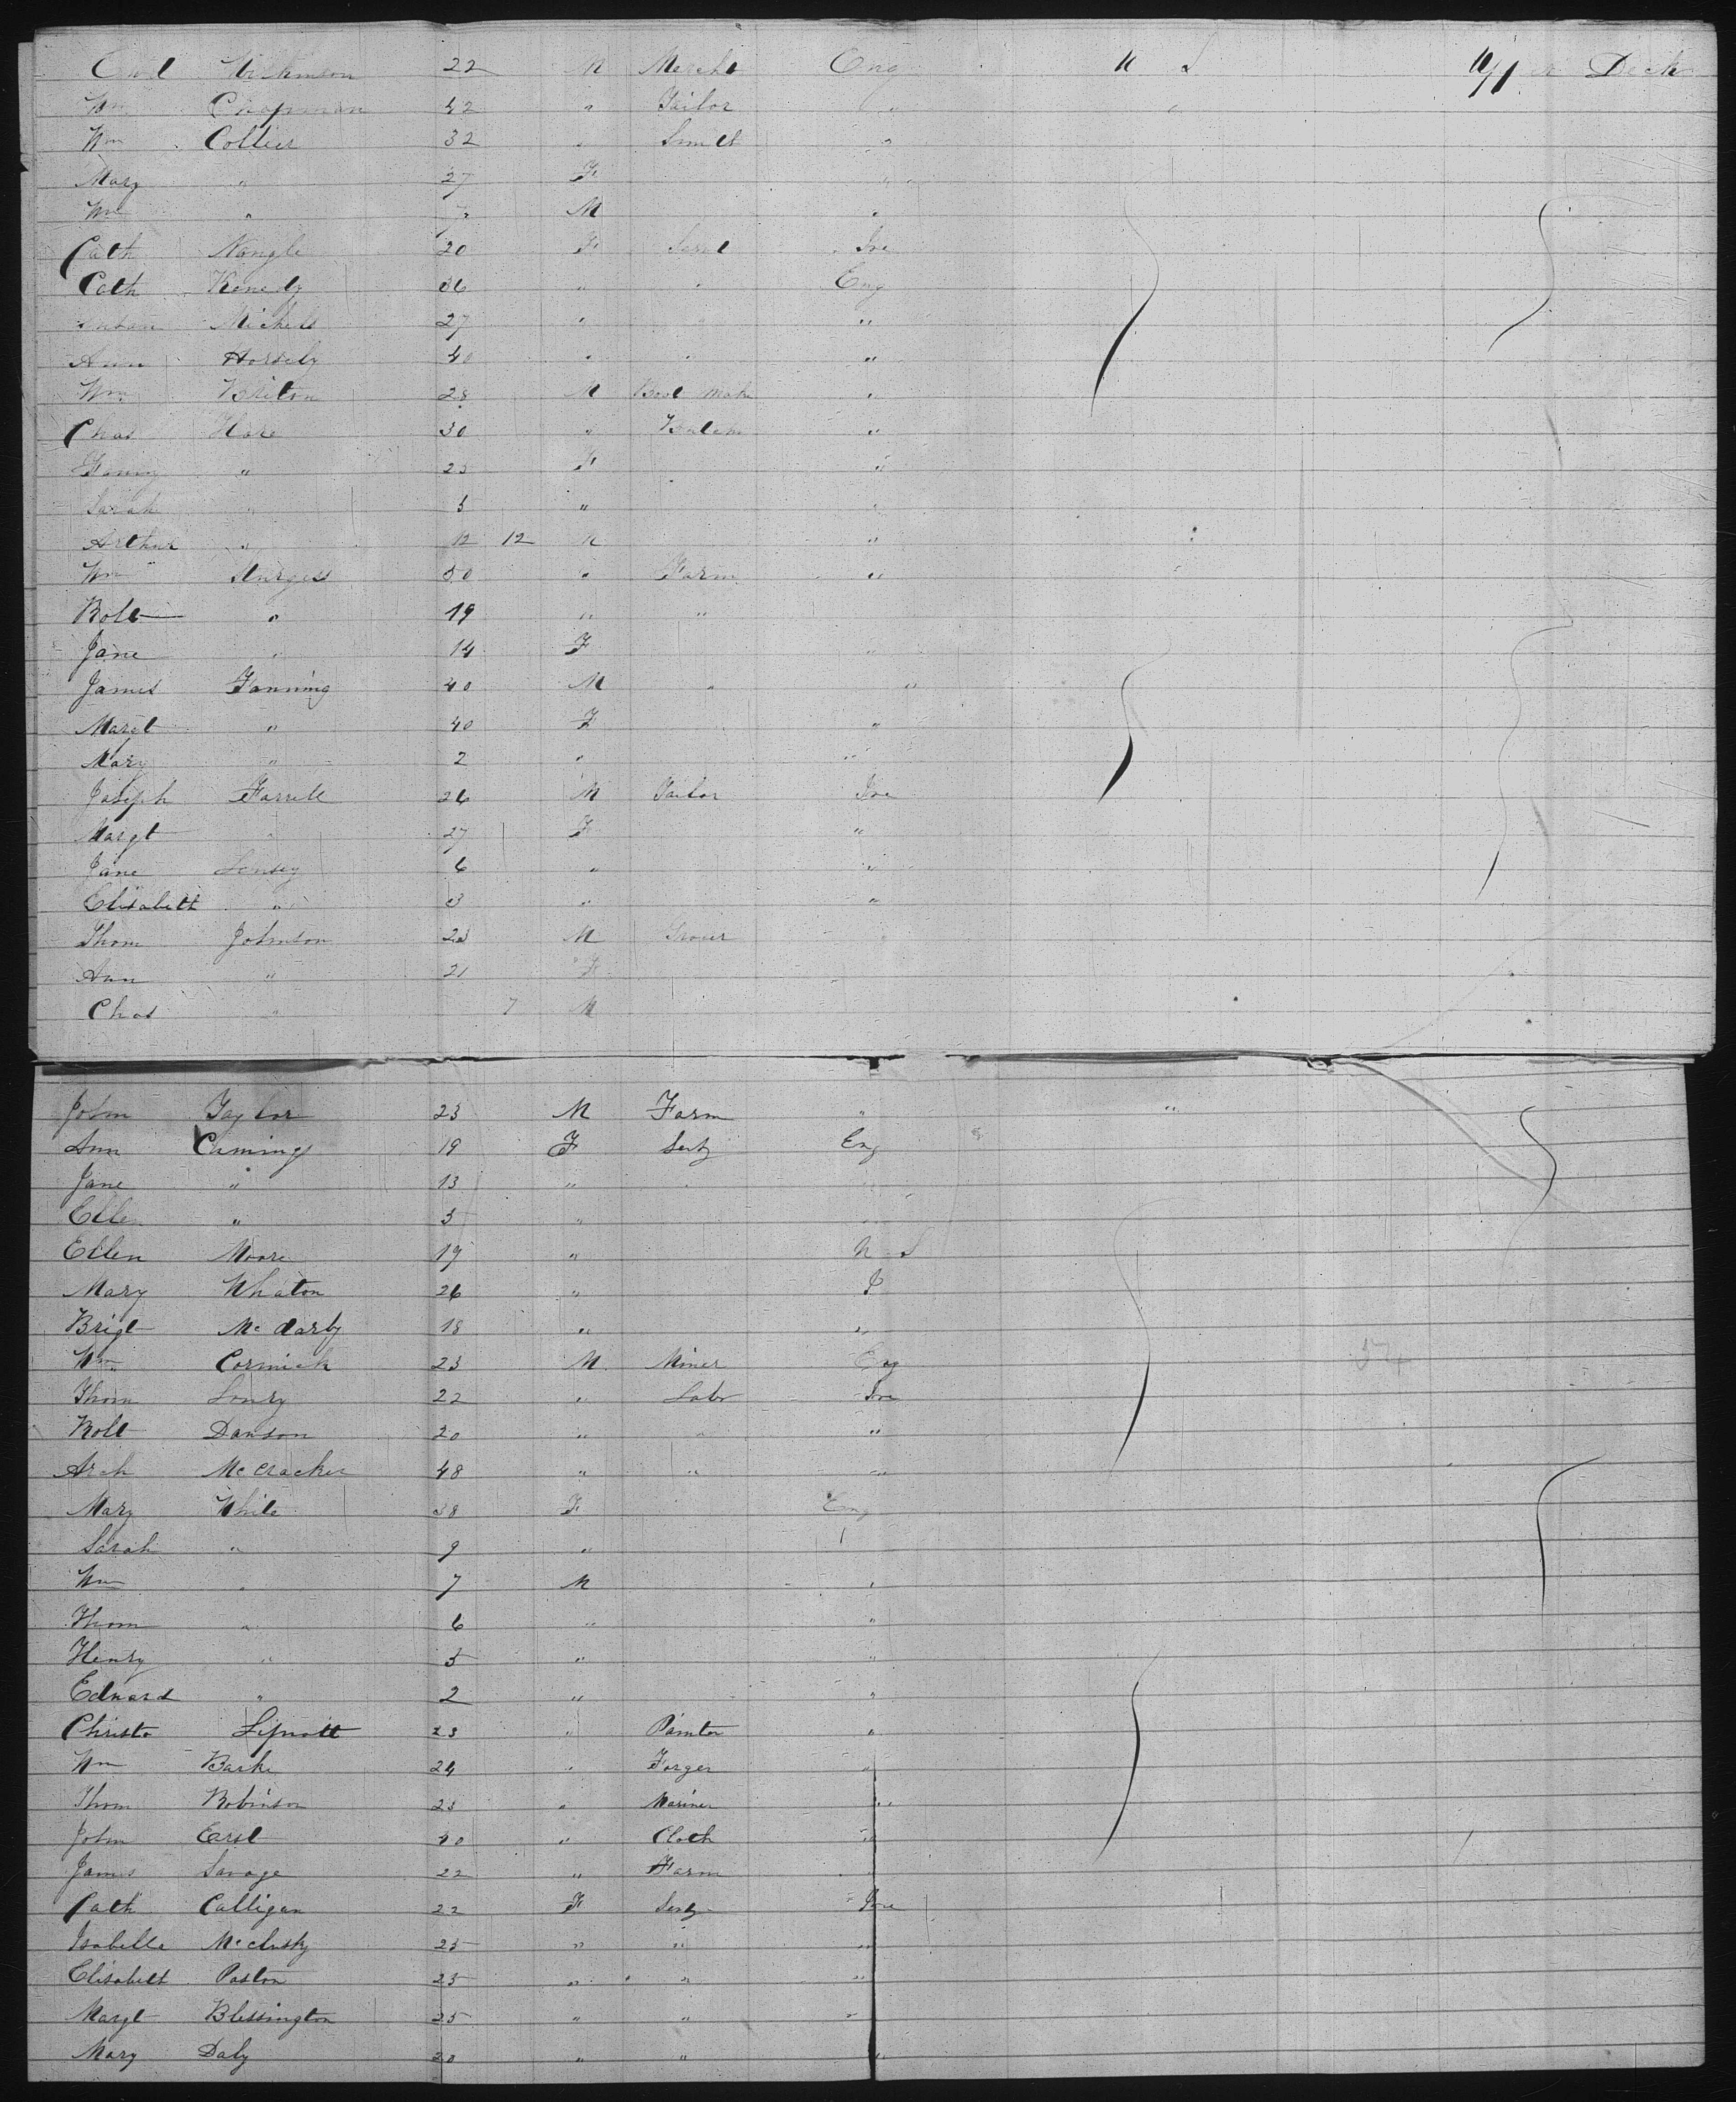 Wilkinson 22 M Mercht Eng U S Upper Deck
Wm Chapman 42 " Tailor "
Wm Collier 32 " "
Mary " 27 F "
Wm " M "
Cath Nangle 20 F Servt Ire
Cath Kenedy 36 " " Eng
Susan Michell 27 " "
Ann Horsely 40 " " "
Wm Briton 28 M Boot Make "
Chas Hare 30 " "
Fanny " 23 F "
Sarah " 5 " "
Arthur " 12 12 "
Wm Sturgess 50 " Farm "
Robt " 19 " "
Jane " 14 F "
James Fanning 40 M " "
Margt " 40 F "
Mary " 2 " "
Joseph Farrell 26 M Tailor Ire
Margt " 27 F "
Jane 6 " "
Elisabeth " 3 " "
Thom Johnson 23 M
Ann " 21 F
Chas " 7 M
John Taylor 23 M Farm " "
Ann Cuming 19 F Eng
Jane " 13 " "
Ellen " 5 "
Ellen Moore 19 " U S
Mary Whaton 26 "
Brigt Mc darby 18 " "
Wm Cormick 23 M Miner Eng
Thom 22 " Labr Ire
Robt Danson 20 " " "
Arch Mc Cracken 48 " " "
Mary White 38 F Eng
Sarah " 9 "
Wm " 7 M "
Thom " 6 " "
Henry " 5 " "
Edward " 2 " "
Christo 23 " Painter "
Wm Barke 24 " Forger "
Thom Robinson 23 " Mariner "
John Earl " Cloth "
James Savage 22 " Farm
Cath Calligan 22 F Ire
Isabella Mc clusky 25 " " "
Elisabeth Paston 25 " " "
Margt Blessington 25 " " "
Mary Daly 20 " " "